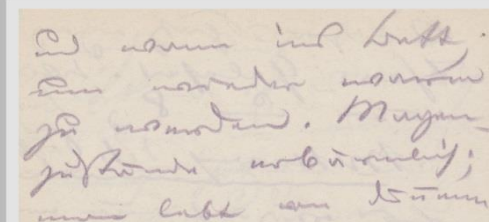 und warm ins Bett,
um wieder warm
zu werden. Magen-
zustände erbärmlich;
man lebt von dünnem